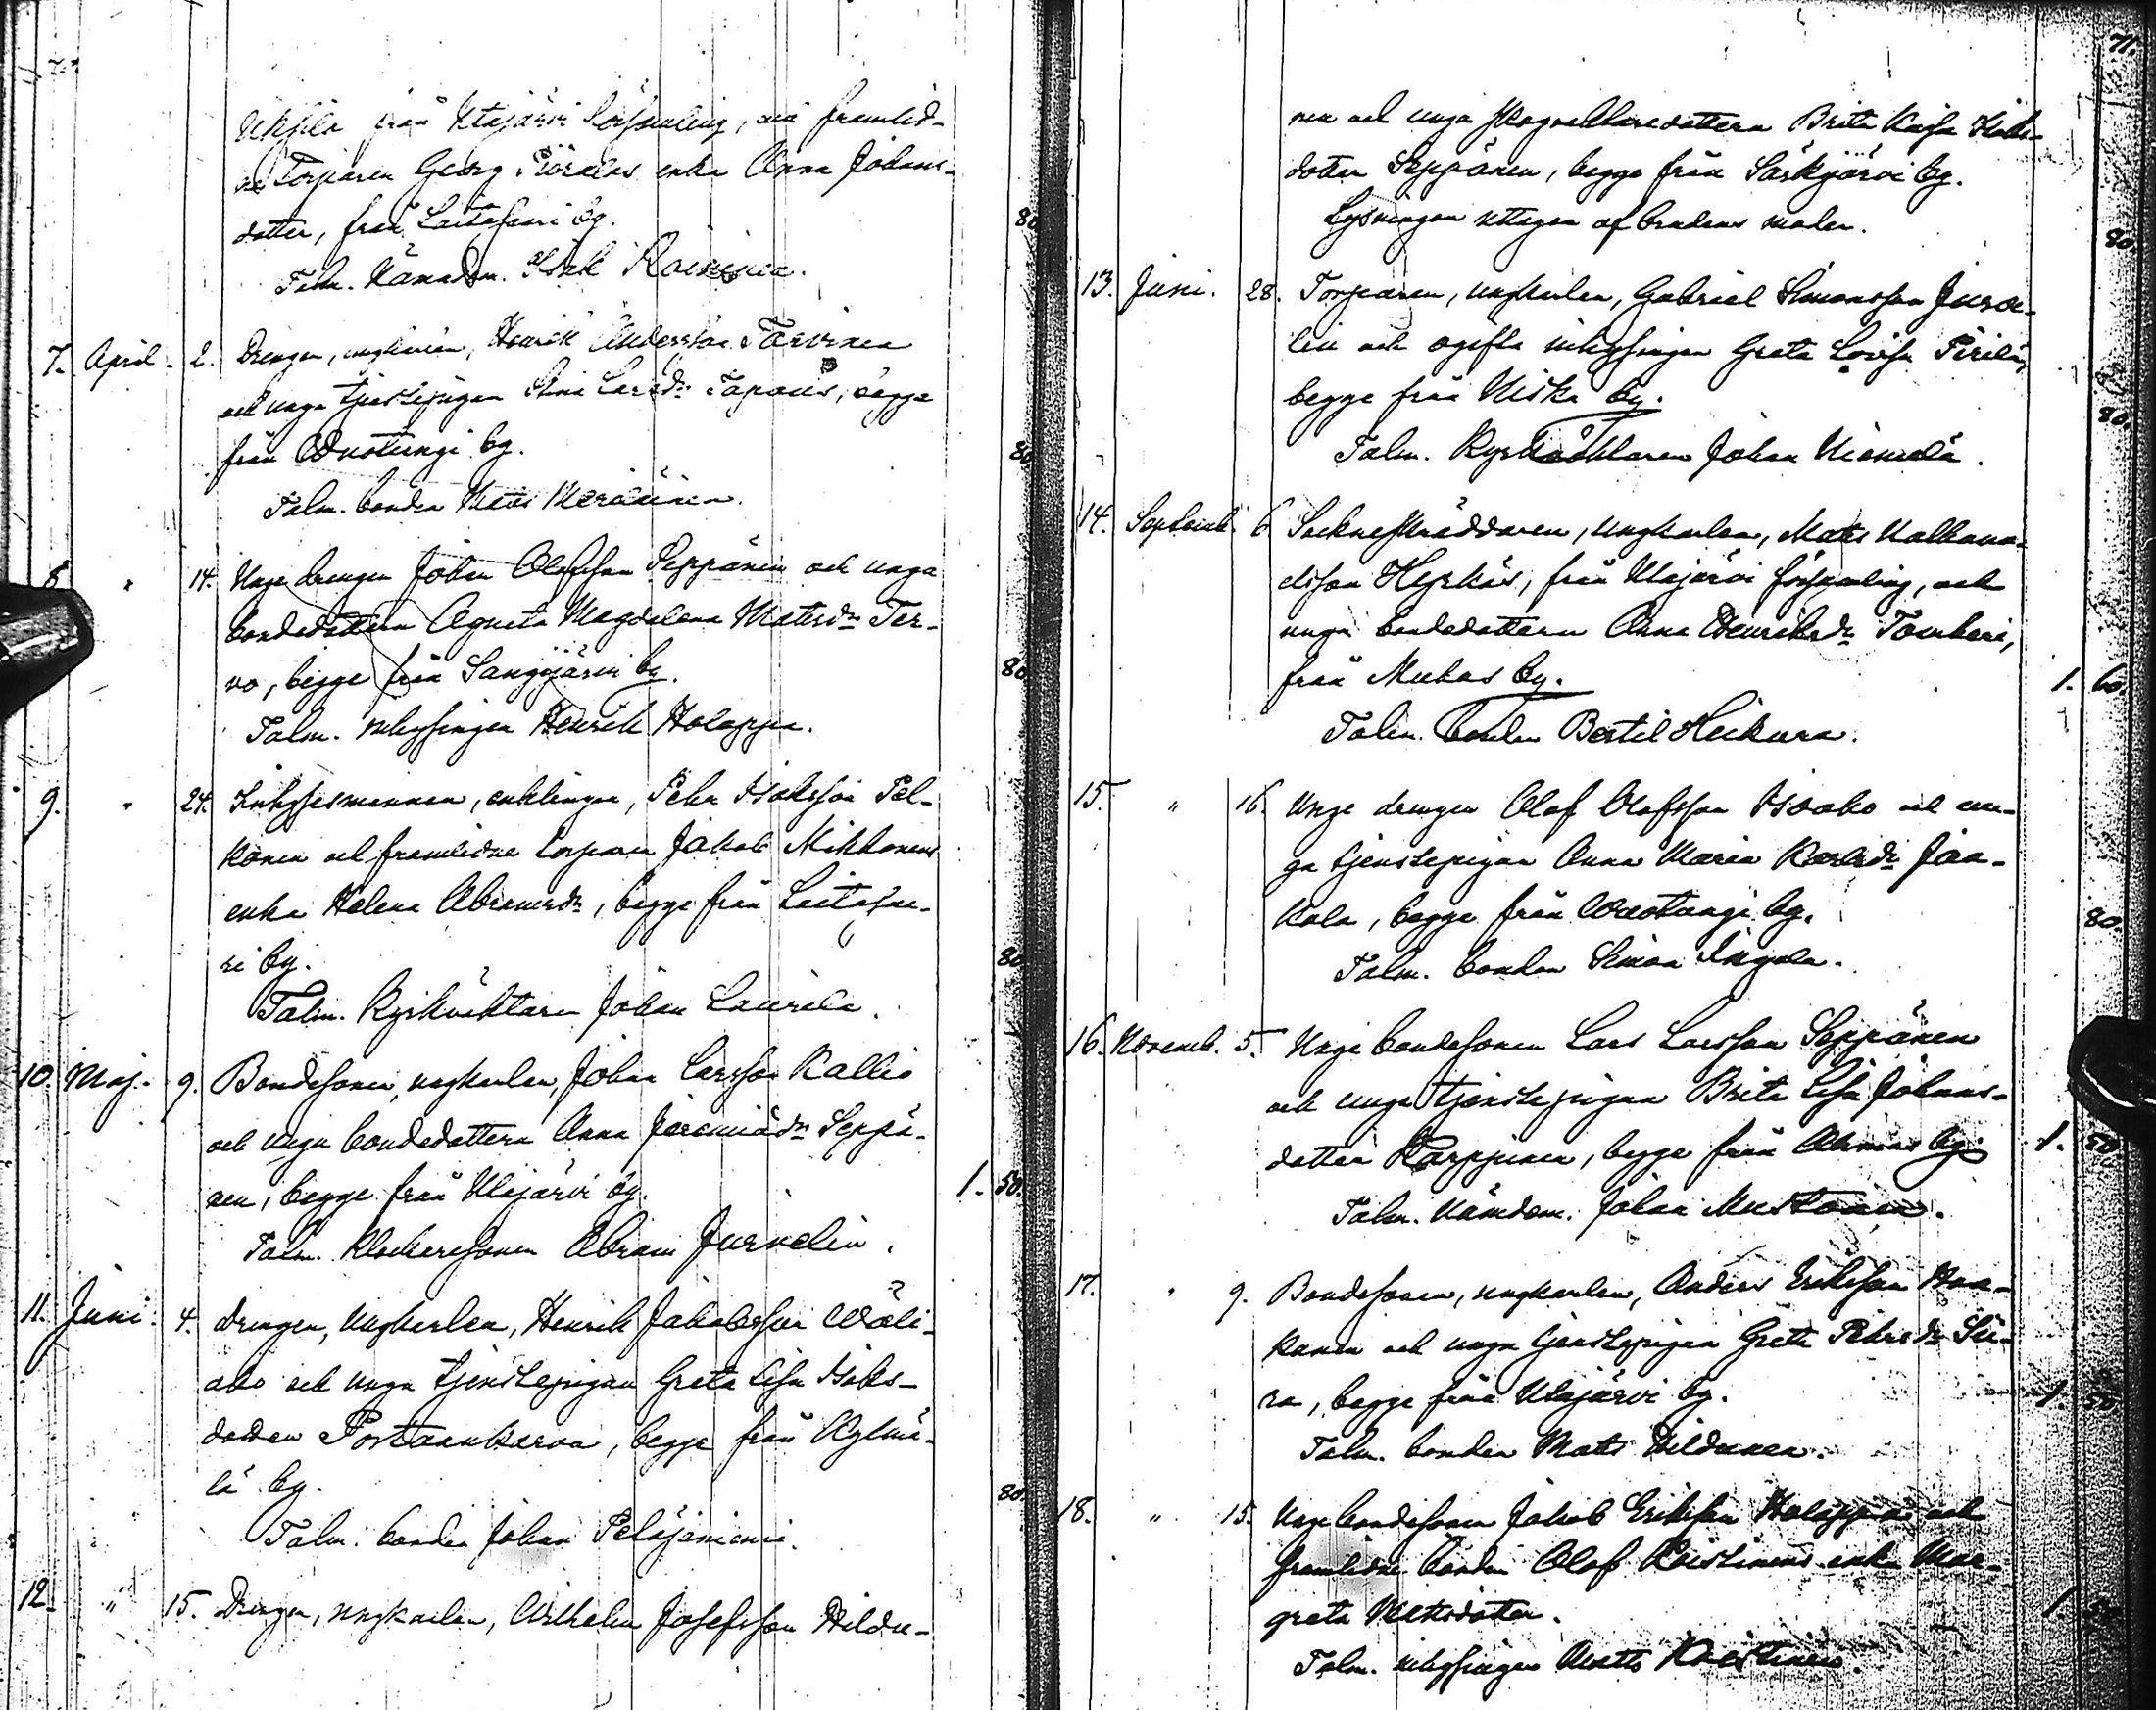 71.
från Utajärvi församling, och framlid-
ne Torparen Georg enka Anna Johans-
dotter, från Laitasaari by. 80
Talm. Nämndem. Isak Roininen.
7. April. 2. Drengen, ungkarlen, Henrik Andersson Tervonen
och unga tjenstepigan Stina Larsdr Tapanis, begge
från Wuotungi by. 80
Talm. bonden Mats Meriläinen.
8. " 14. Unge drengen Johan Olofsson Seppänen och unga
bondedottern Agneta Magdalena Matsdr Ter-
vo, begge från Sanginjärvi by. 80
Talm. inhysingen Henrik Holappa.
9. " 24. Inhysesmannen, enklingen, Pehr Isaksson Pel-
konen och framlidne torparen Jakob Mikkonens
enka Helena Abramsdr, begge från Laitasaa-
ri by. 80
Talm. Kyrkväktaren Johan Laurila.
10. Maj. 9. Bondesonen, ungkarlen, Johan Larsson Kallio
och unga bondedottern Anna Jeremiädr Seppä-
nen, begge från Utajärvi by. 1. 50.
Talm. Klockaresonen Abram Jurvelin.
11. Juni. 4. Drengen, Ungkarlen, Henrik Jakobsson Wäli-
aho och unga tjenstepigan Greta Lisa Isaks-
dotter Portaankorva, begge från Kylmä-
lä by. 80.
Talm. bonden Johan Pelsjäniemi.
12. " 15. Drengen, ungkarlen, Wilhelm Josefsson Hildu-
nen och unga Skogvaktaredottern Brita Kajsa
dotter Seppänen, begge från Särkijärvi by.
Lysningen uttagen af brudens moder. 80.
13. Juni. 28. Torparen, ungkarlen, Gabriel Simonsson Jurve-
lin och ogifta inhysingen Greta Lovisa Perilä,
begge från Niska by. 80.
Talm. Kyrkväktaren Johan Niemelä.
14. Septemb. 6. Sockneskräddaren, ungkarlen, Mats
elsson Hyrkäs, från Utajärvi församling, och
unga bondedottern Anna Henriksdr Tomberi,
från Muhos by. 1. 60.
Talm. bonden Bertil Heikura.
15. " 16. Unge drengen Olof Olofsson Isoaho och un-
ga tjenstepigan Anna Maria Karlsdr Jaa-
kola, begge från Wuotungi by. 80.
Talm. bonden Simon Ingala.
16. Novemb. 5. Unge bondesonen Lars Larsson Seppänen
och unga tjenstepigan Brita Lisa Johans-
dotter Karppinen, begge från Ahmas by. 1. 50
Talm. Nämdem. Johan Mustonen.
17. " 9. Bondesonen, ungkarlen, Anders Eriksson
och unga tjenstepigan Greta Pehrsdr
ra, begge från Utajärvi by. 1. 50
Talm. bonden Matts Hildunen.
18. " 15. Unge bondesonen Jakob Eriksson Holappa och
framlidne bonden Olof Koistinens enka Mar-
greta Mattsdotter. 1.
Talm. inhysingen Matts Koistinen.